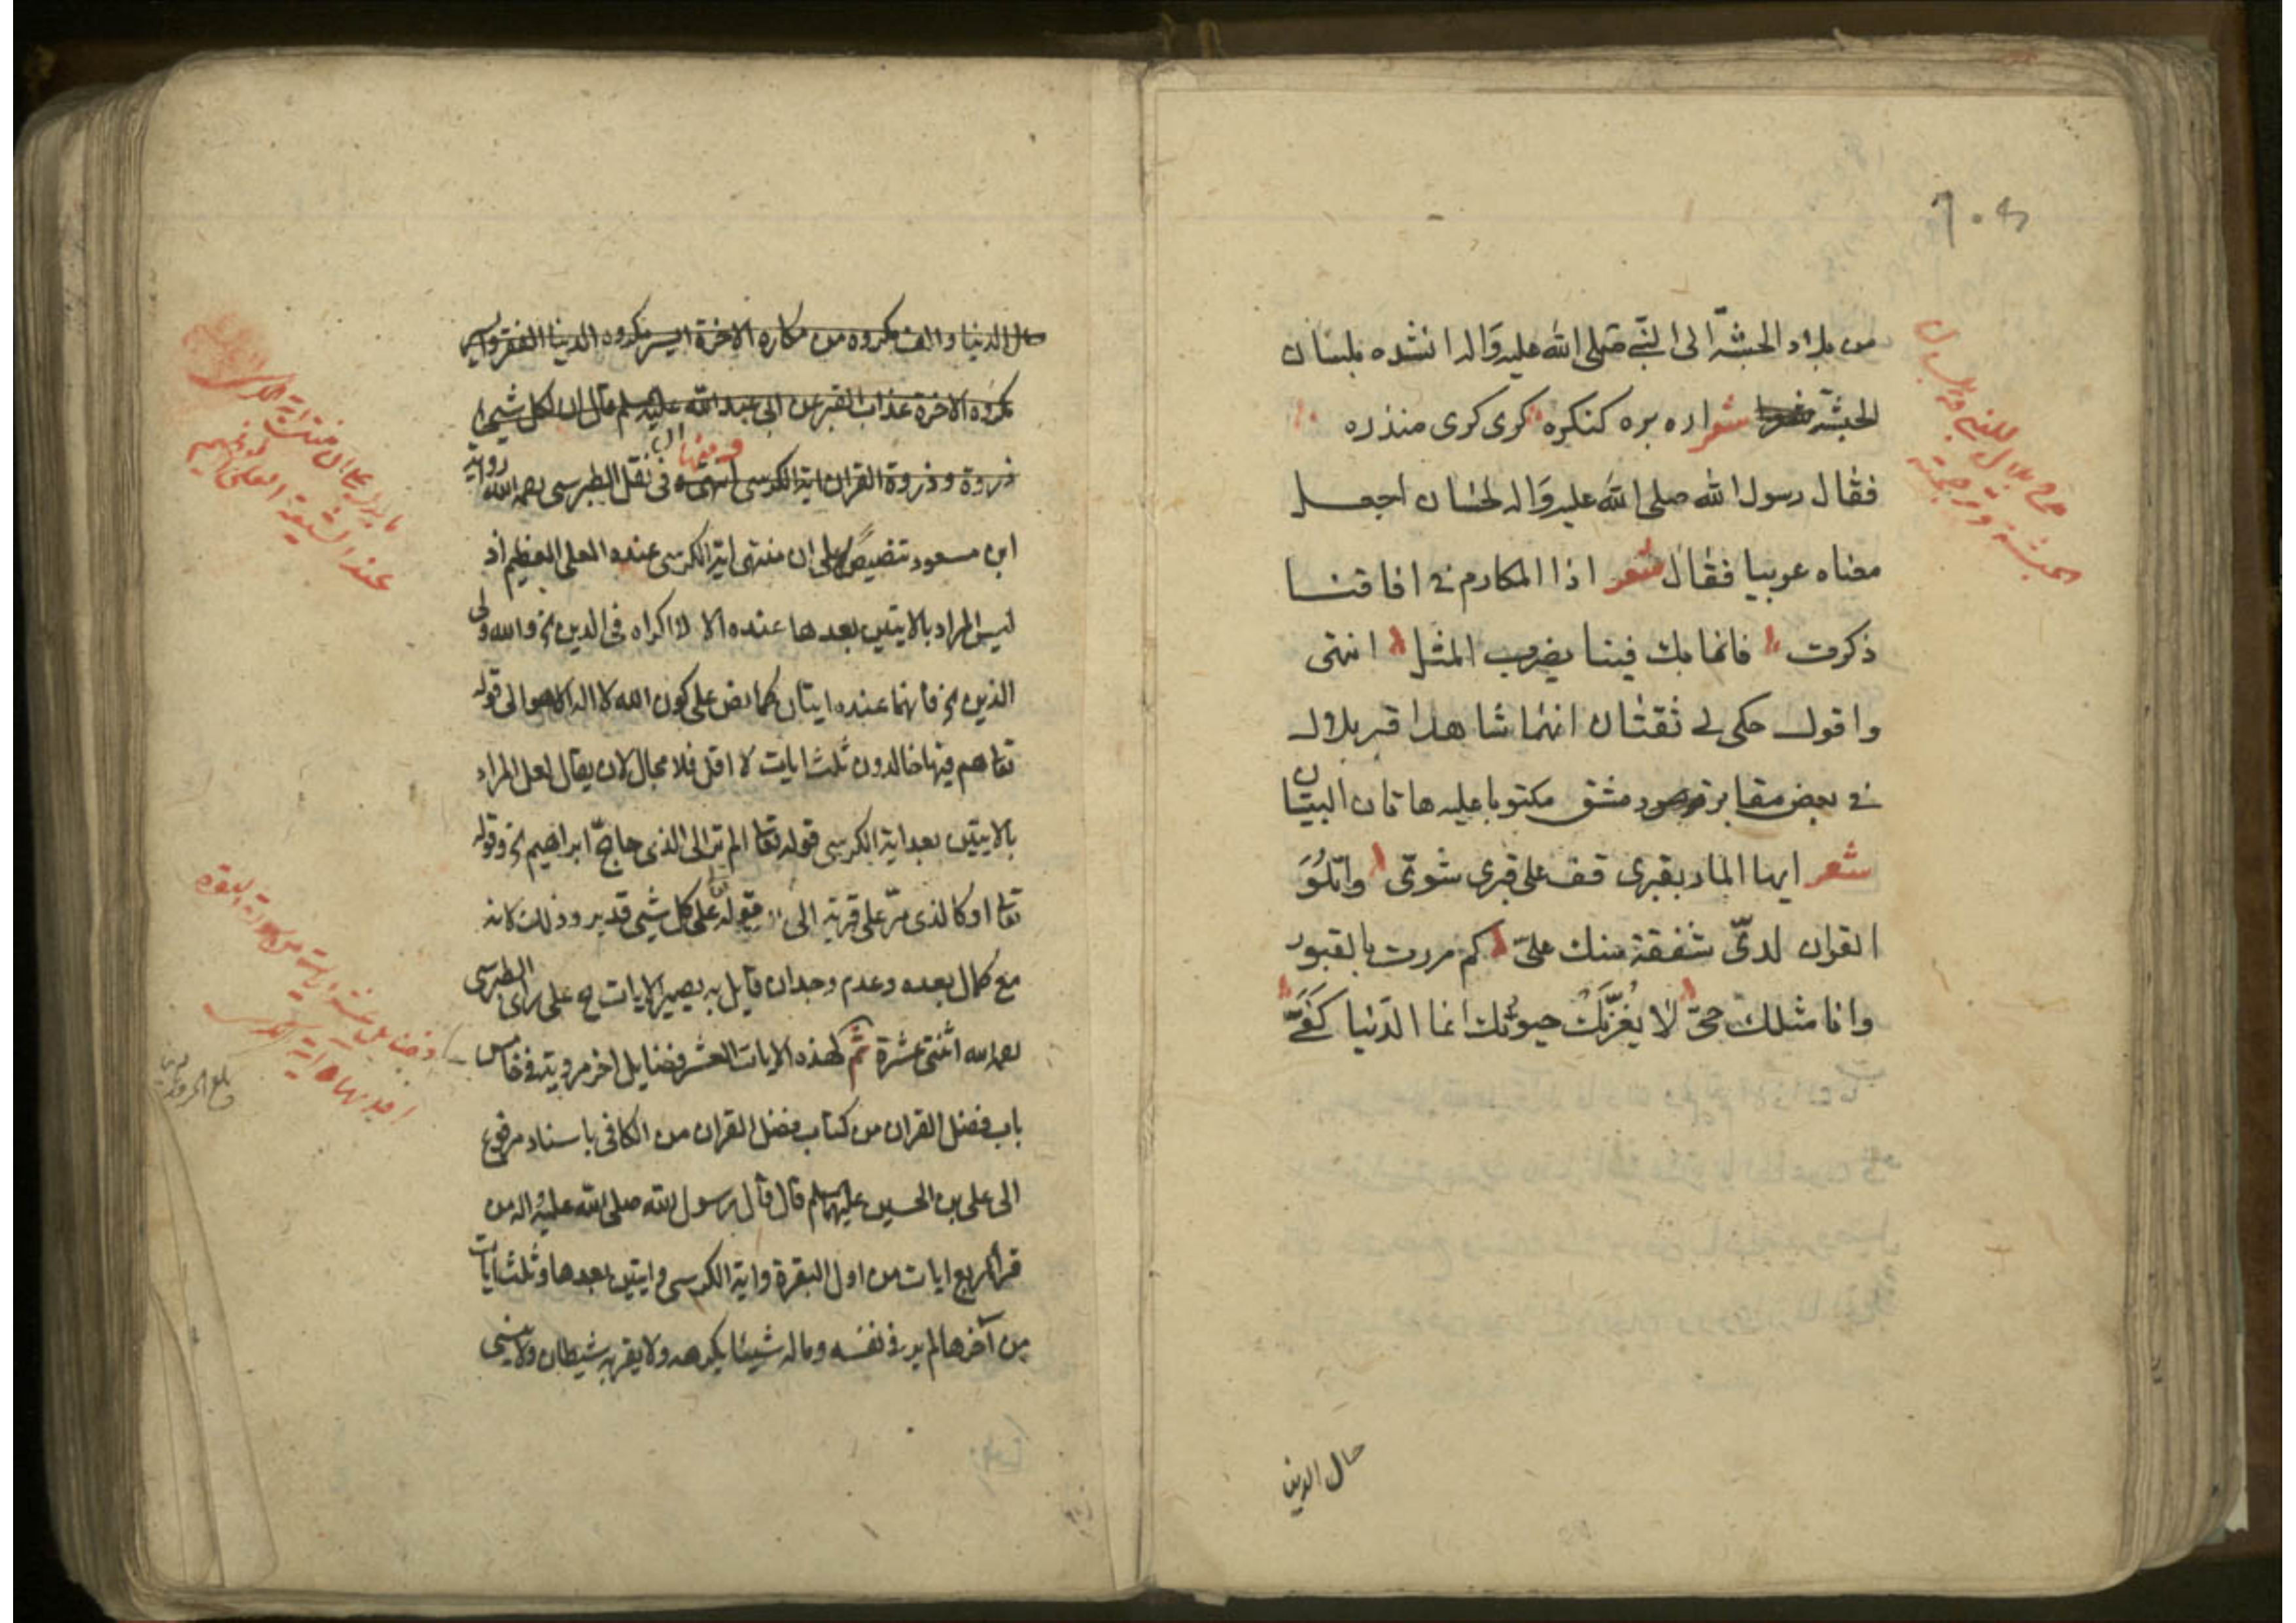 من بلاد الحبشة الى النبي صلى الله عليه واله انشده بلسان
الحبشة شعر اره بره كنكره كرى كرى مندره
فقال رسول الله صلى الله عليه واله لحسان اجعل
معناه عربيا فقال شعر اذا المكارم في افاقنا
ذكرت فانما بك فينا يضرب المثل انتهى
واقول حكى لي ثقتان انهما شاهدا قبر بلال
في بعض مقابر دمشق مكتوبا عليه هاتان البيتان
شعر ايها المار بقبرى قف على قبرى شوى واتلو
القران لدى شفقة منك على كم مررت بالقبور
وانا مثلك حى لا يغرنك حيوتك انما الدنيا كفى
حال الدنيا
حال الدنيا والف مكروه من مكاره الاخرة ايسر مكروه الدنيا الفقر وايسر
مكروه الاخرة عذاب القبر عن ابى عبد الله عليه السلم قال ان لكل شيئ
ذروة وذروة القران اية الكرسى انتهى وفى نقل الطبرسى رحمه الله رواية
ابن مسعود تنصيص على ان منتهى اية الكرسى عنده العلى العظيم اذ
ليس المراد بالايتين بعدها عنده الا لا اكراه فى الدين الخ والله ولى
الذين الخ فانهما عنده ايتان كما نص على كون الله لا اله الا هو الى قوله
تعا هم فيها خالدون ثلث ايات لا اقل فلا مجال لان يقال لعل المراد
بالايتين بعد اية الكرسى قوله تعا الم تر الى الذى حاج ابراهيم الخ وقوله
تعالى او كالذى مر على قرية الى قوله على كل شيئ قدير وذلك لانه
مع كمال بعده وعدم وجدان قايل به يصير الايات ح على راى الطبرسى
رحمه الله اثنتى عشرة ثم لهذه الايات العشر فضايل اخر مروية فى خامس
باب فضل القران من كتاب فضل القران من الكافى باسناد مرفوع
الى على بن الحسين عليهما السلم قال قال رسول الله صلى الله عليه واله من
قرا اربع ايات من اول البقرة واية الكرسى وايتين بعدها وثلث ايات
من آخرها لم ير فى نفسه وماله شيئا يكرهه ولا يقربه شيطان ولا ينسى